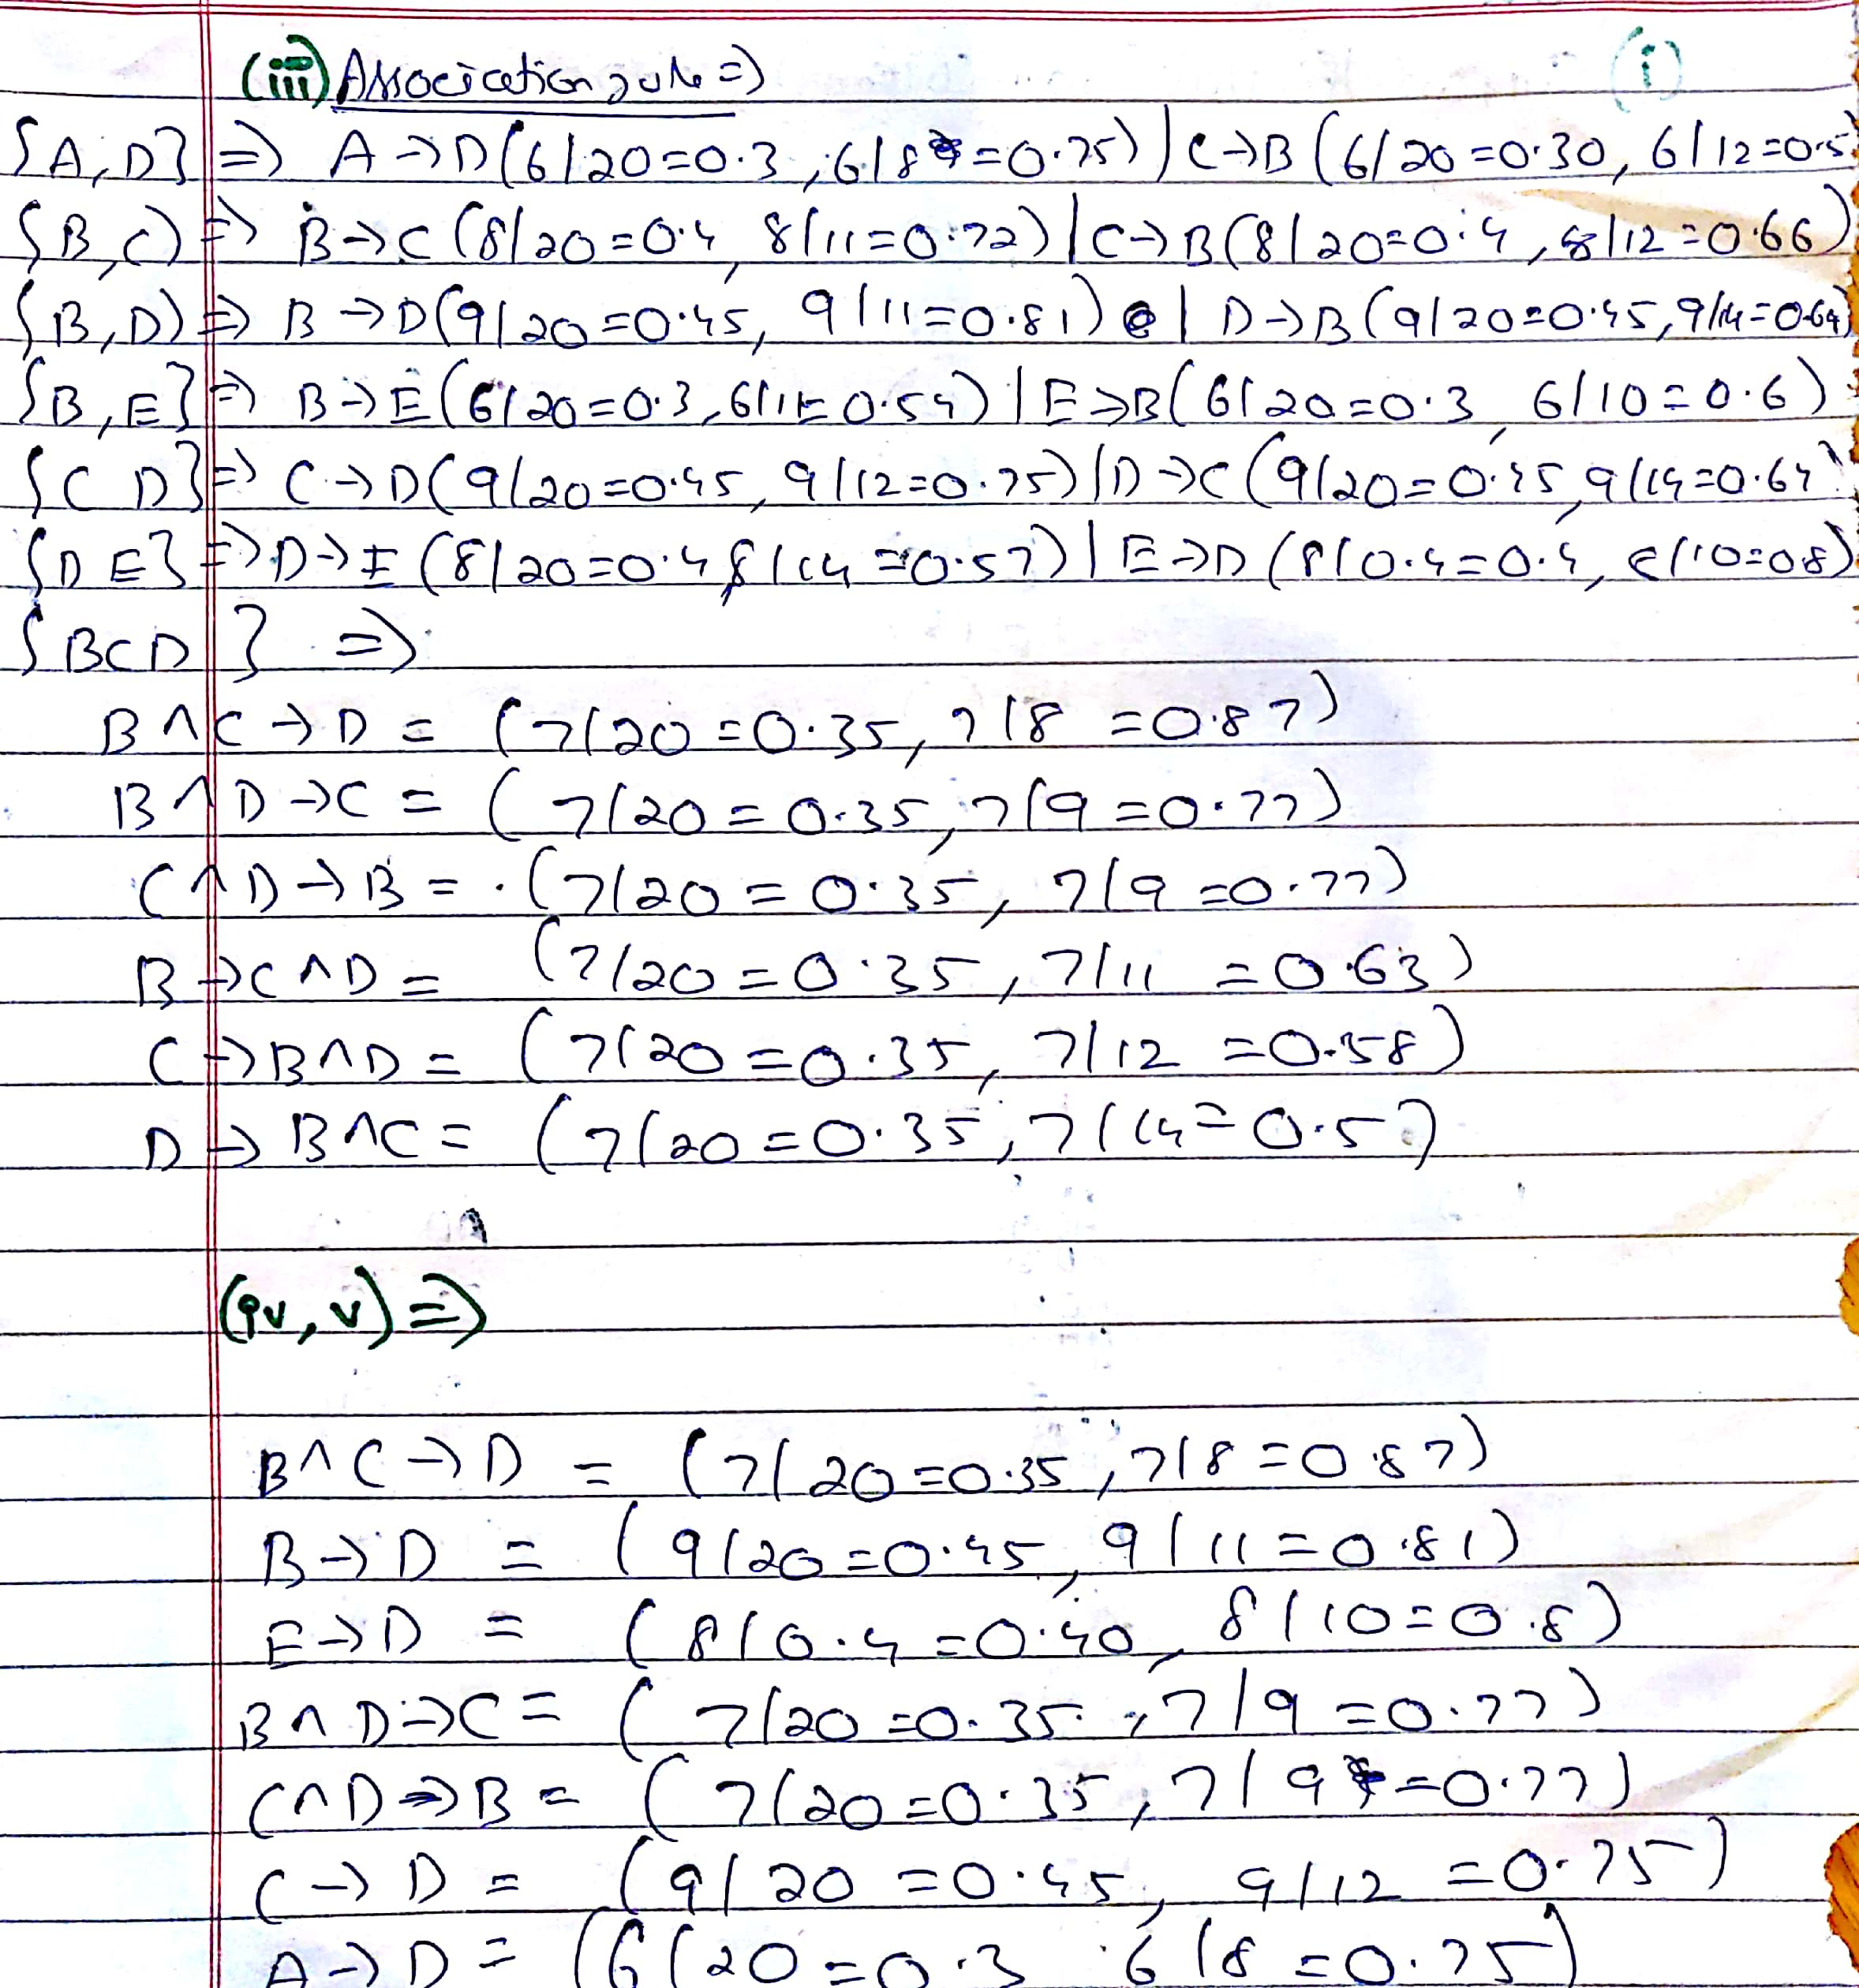 (iii) Association rule => (i)
{A, D} => A -> D (6/20=0.3, 6/8=0.75) | C -> B (6/20=0.30, 6/12=0.5
{B, C) => B -> C (8/20=0.4, 8/11=0.72) | C -> B (8/20=0.4, 8/12=0.66)
{B, D) => B -> D (9/20=0.45, 9/11=0.81) | D -> B (9/20=0.45, 9/14=0.64)
{B, E} => B -> E (6/20=0.3, 6/11=0.54) | E -> B (6/20=0.3, 6/10=0.6)
{C D} => C -> D (9/20=0.45, 9/12=0.75) | D -> C (9/20=0.45, 9/14=0.64)
{D E} => D -> E (8/20=0.4, 8/14=0.57) | E -> D (8/0.4=0.4, 8/10=0.8)
{BCD} =>
B ∧ C -> D = (7/20=0.35, 7/8=0.87)
B ∧ D -> C = (7/20=0.35, 7/9=0.77)
C ∧ D -> B = (7/20=0.35, 7/9=0.77)
B -> C ∧ D = (7/20=0.35, 7/11=0.63)
C -> B ∧ D = (7/20=0.35, 7/12=0.58)
D -> B ∧ C = (7/20=0.35, 7/14=0.5)
(iv, v) =>
B ∧ C -> D = (7/20=0.35, 7/8=0.87)
B -> D = (9/20=0.45, 9/11=0.81)
E -> D = (8/0.4=0.40, 8/10=0.8)
B ∧ D -> C = (7/20=0.35, 7/9=0.77)
C ∧ D -> B = (7/20=0.35, 7/9=0.77)
C -> D = (9/20=0.45, 9/12=0.75)
A -> D = (6/20=0.3 6/8=0.75)